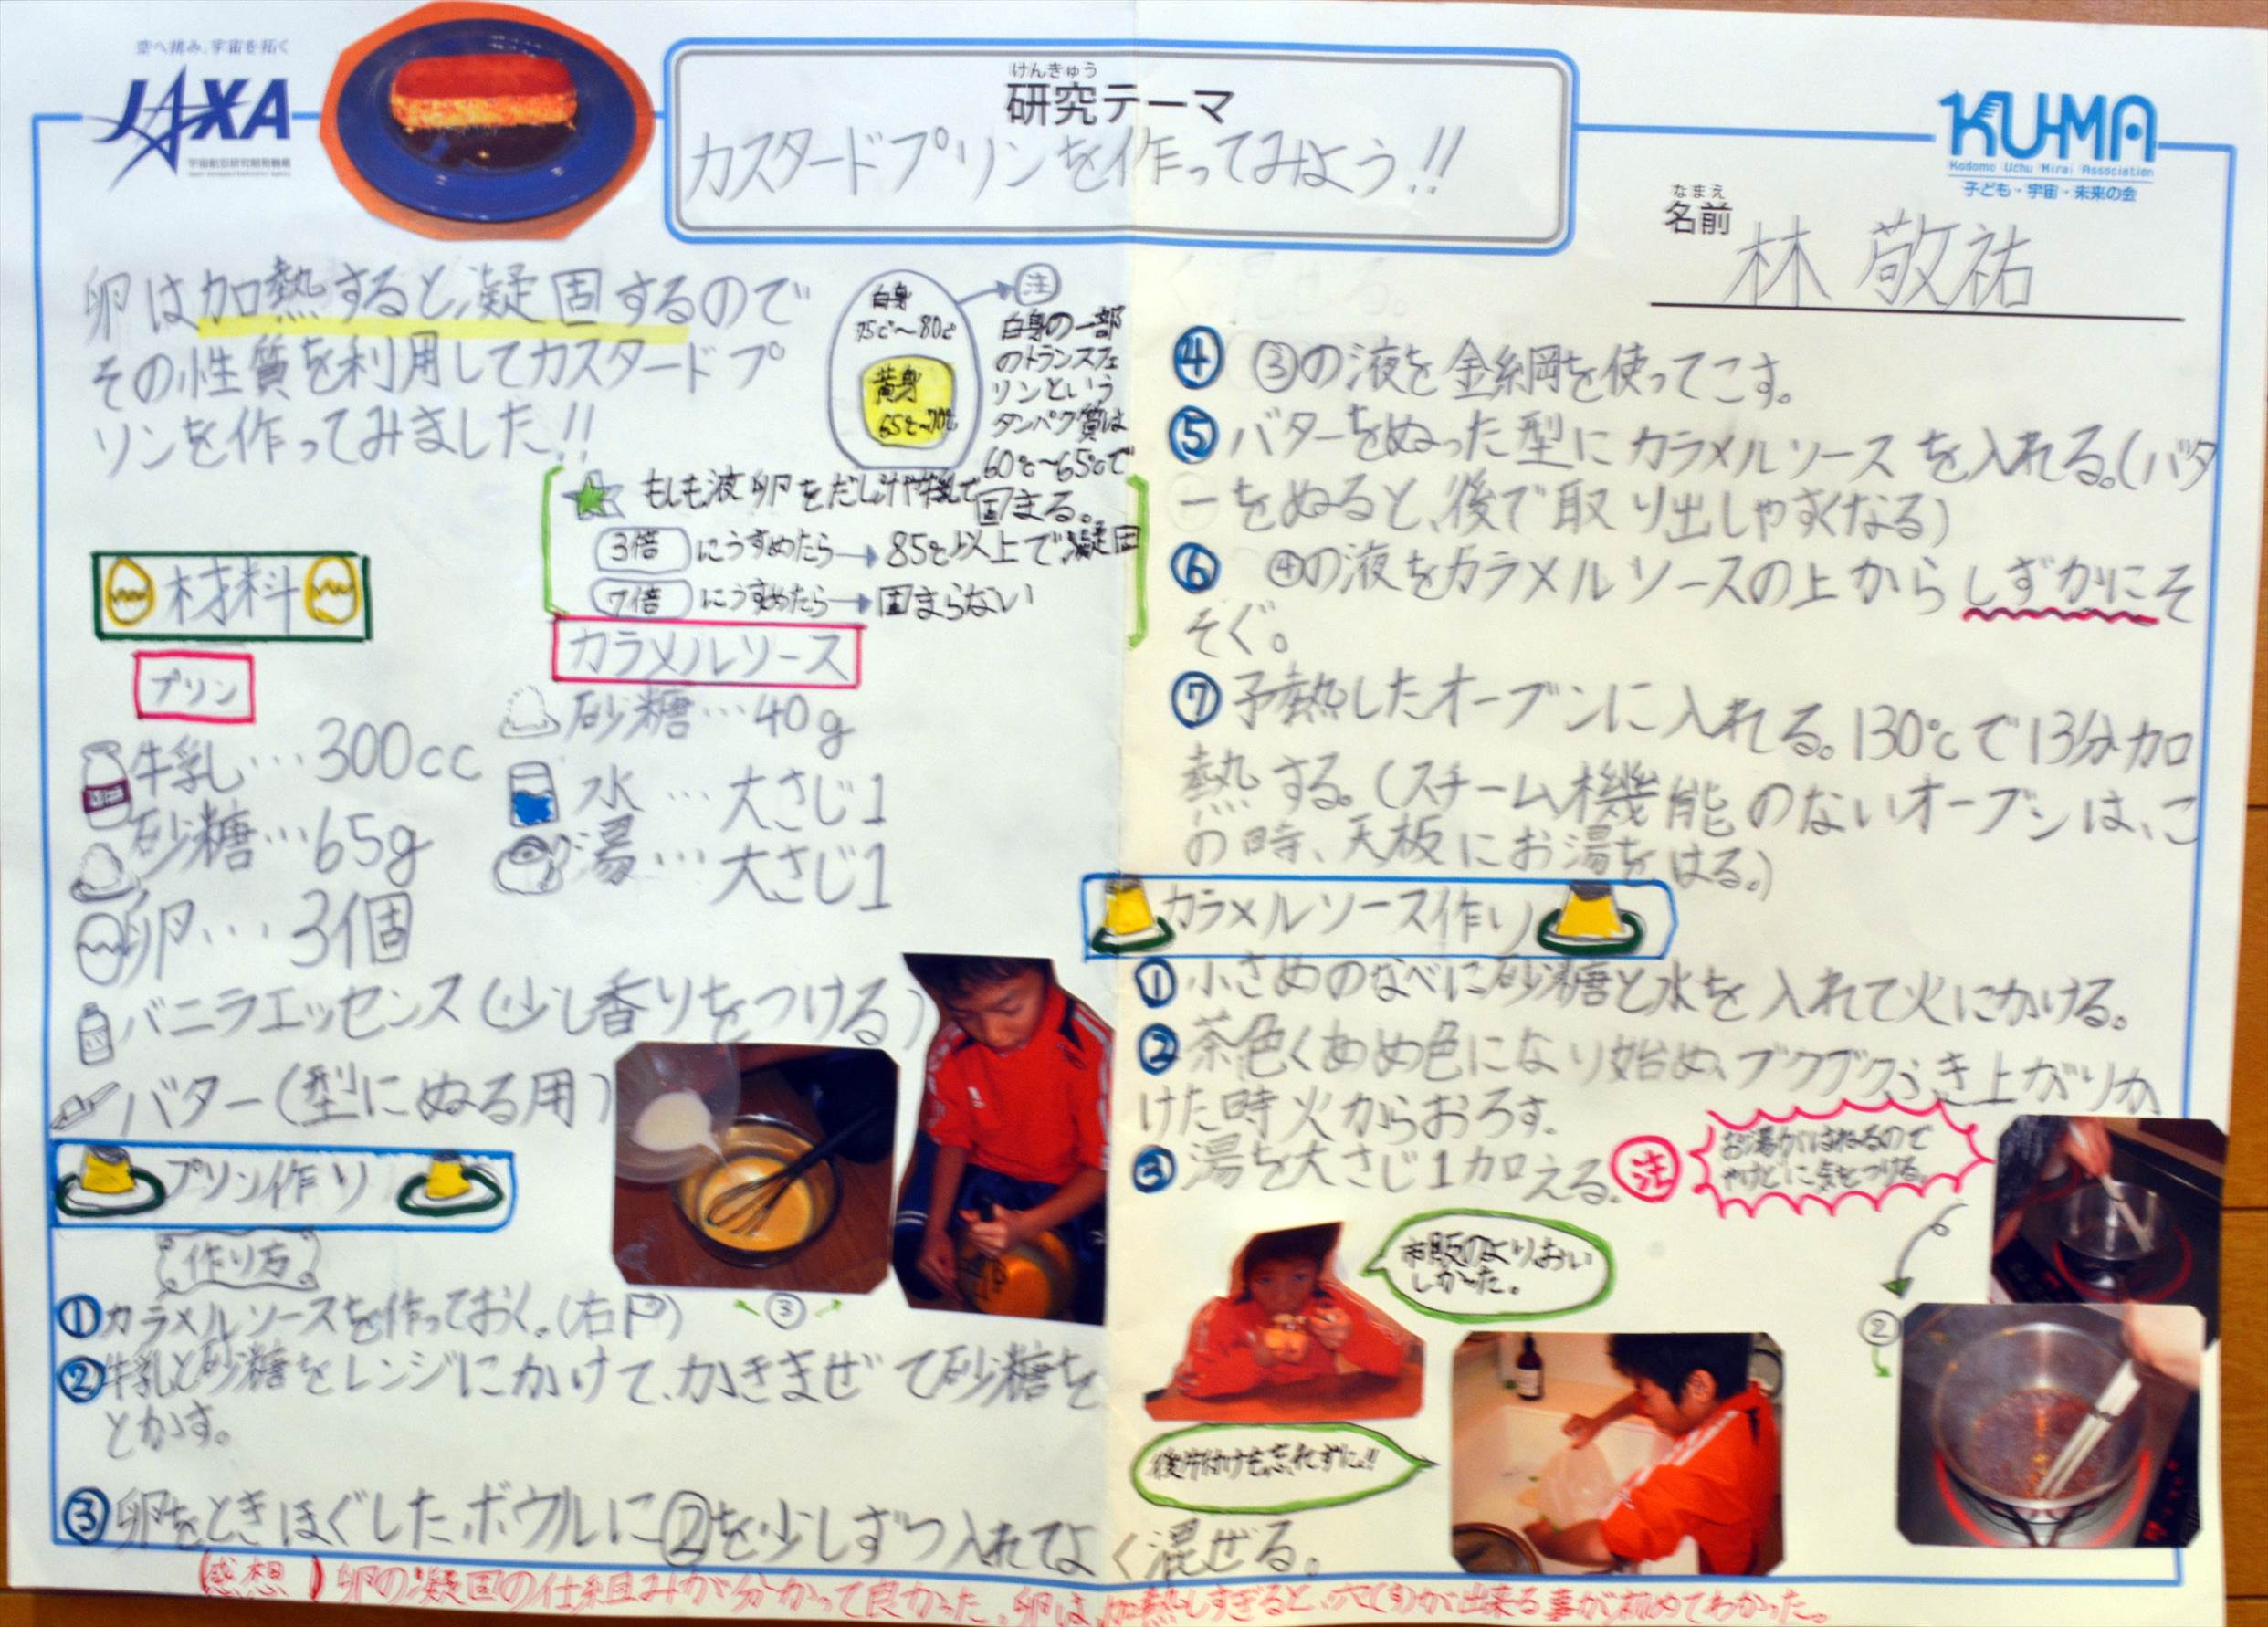 空へ挑み、宇宙を拓く
JAXA
宇宙航空研究開発機構
Japan Aerospace Exploration Agency
けんきゅう
研究テーマ
カスタードプリンを作ってみよう!!
KU-MA
Kodomo Uchu Mirai Association
子ども・宇宙・未来の会
なまえ
名前
林 敬祐
卵は加熱すると凝固するので
その性質を利用してカスタードプ
リンを作ってみました!!
白身
75℃~80℃
黄身
65℃~70℃
注
白身の一部
のトランスフェ
リンという
タンパク質は
60℃~65℃で
固まる。
もしも液卵をだし汁や牛乳で
3倍にうすめたら→85℃以上で凝固
7倍にうすめたら→固まらない
材料
プリン
牛乳…300cc
砂糖…65g
卵…3個
バニラエッセンス(少し香りをつける)
バター(型にぬる用)
カラメルソース
砂糖…40g
水…大さじ1
湯…大さじ1
プリン作り
作り方
①カラメルソースを作っておく。(右下)
②牛乳と砂糖をレンジにかけて、かきまぜて砂糖を
とかす。
③卵をときほぐしたボウルに②を少しずつ入れてよく混ぜる。
③
④ ③の液を金網を使ってこす。
⑤バターをぬった型にカラメルソースを入れる。(バタ
ーをぬると、後で取り出しやすくなる)
⑥ ④の液をカラメルソースの上からしずかにそ
そぐ。
⑦予熱したオーブンに入れる。130℃で13分加
熱する。(スチーム機能のないオーブンは、こ
の時、天板にお湯をはる。)
カラメルソース作り
①小さめのなべに砂糖と水を入れて火にかける。
②茶色くあめ色になり始め、ブクブクふき上がりか
けた時火からおろす。
③湯を大さじ1加える。
注
お湯がはねるので
やけどに気をつける。
②
市販のよりおい
しかった。
後片付けも忘れずに!!
(感想)卵の凝固の仕組みが分かって良かった。卵は、加熱しすぎると、穴(す)が出来る事が初めてわかった。